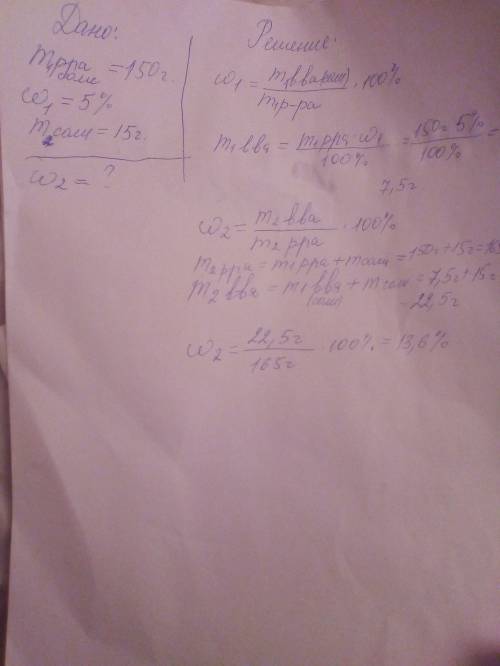 Дано:
m₁ рра соли = 150г.
ω₁ = 5%
m₂ соли = 15г.
ω₂ = ?
Решение:
ω₁ = m₁ в ва(соли) / m₁р-ра · 100%
m₁ вва = m₁ рра · ω₁ / 100% = 150г · 5% / 100% =
7,5г
ω₂ = m₂ вва / m₂ рра · 100%
m₂ рра = m₁ рра + m соли = 150г + 15г = 165
m₂ вва = m₁ вва (соли) + m соли = 7,5г + 15г
22,5г
ω₂ = 22,5г / 165г · 100% = 13,6%